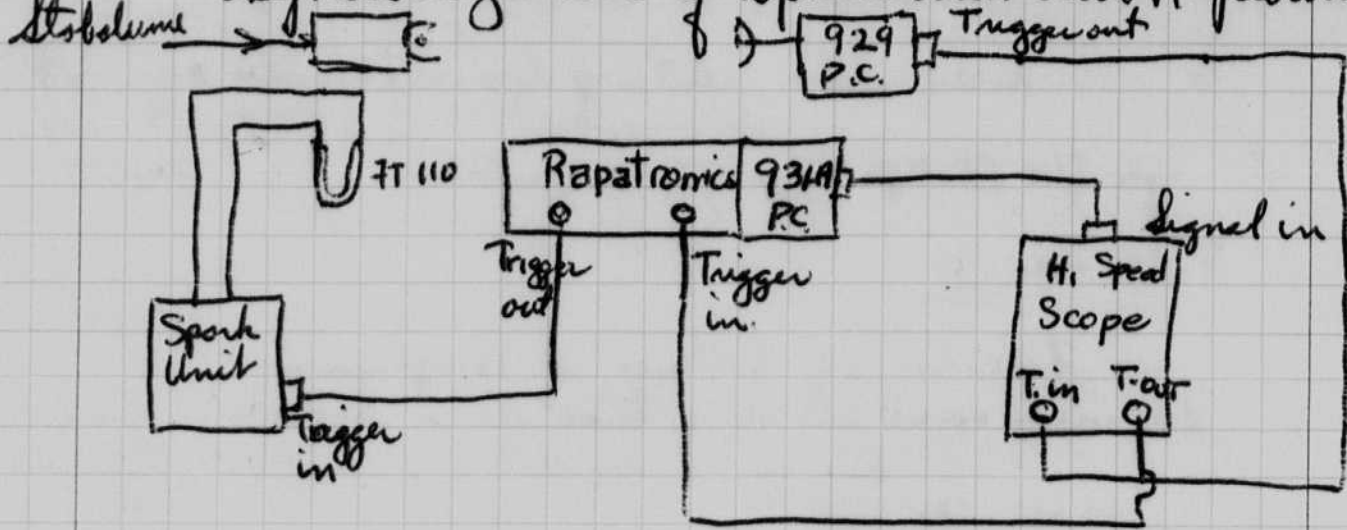 Stobolume
929
P.C.
Trigger out
FT 110
Rapatronics
931A
P.C.
Signal in
Trigger
out
Trigger
in.
Hi Speed
Scope
T. in T-out
Spark
Unit
Trigger
in